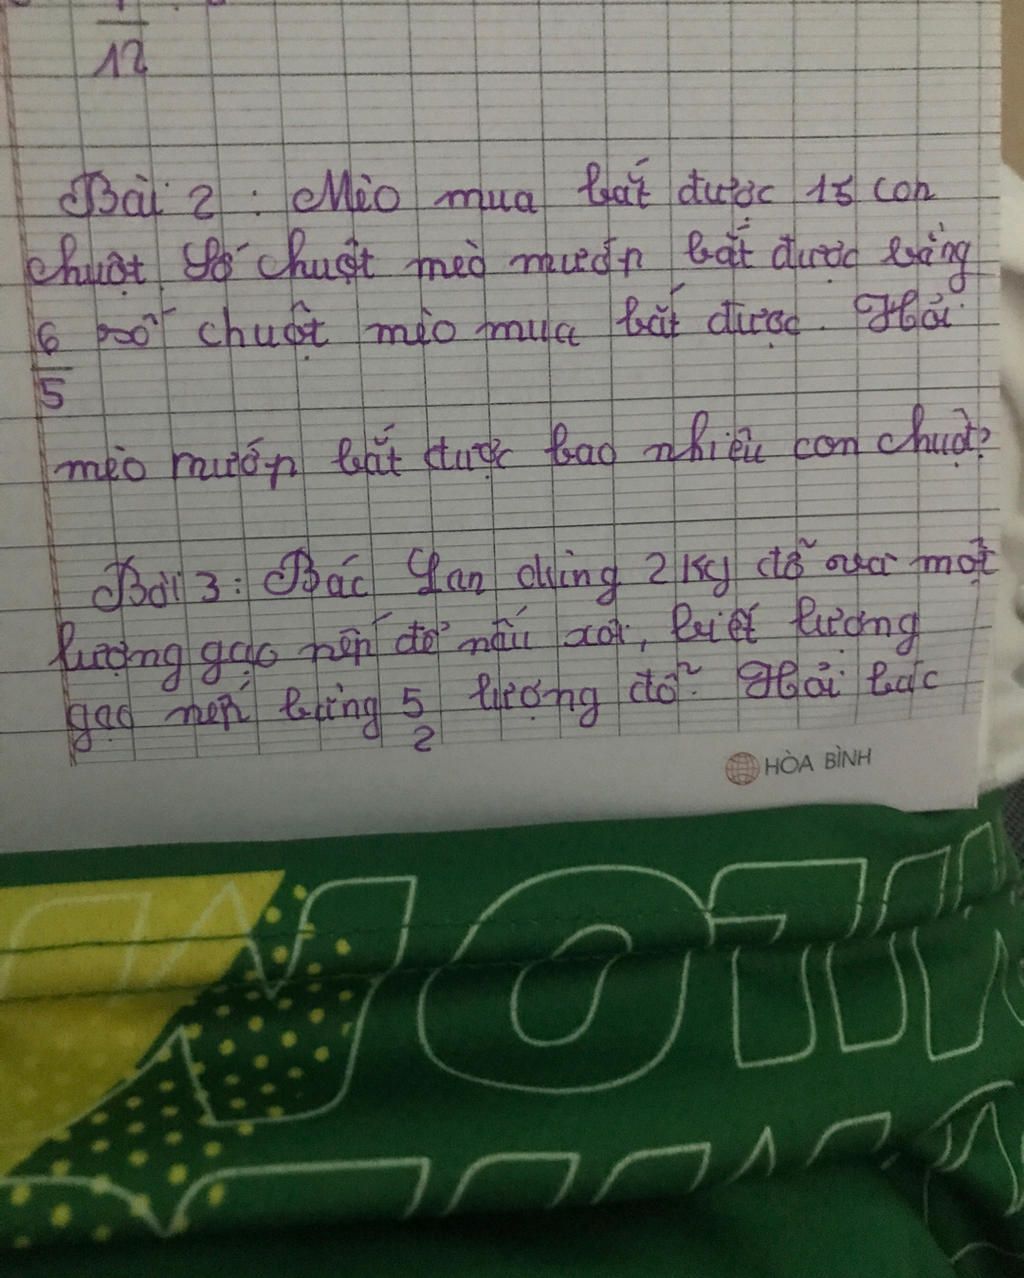 12
Bài 2: Mèo mua bắt được 15 con
chuột. Số chuột mèo mướp bắt được bằng
6 số chuột mèo mua bắt được. Hỏi
5
mèo mướp bắt được bao nhiêu con chuột?
Bài 3: Bác Lan dùng 2 kg đỗ và một
lượng gạo nếp để nấu xôi, biết lượng
gạo nếp bằng 5 lượng đỗ. Hỏi bác
2
HÒA BÌNH